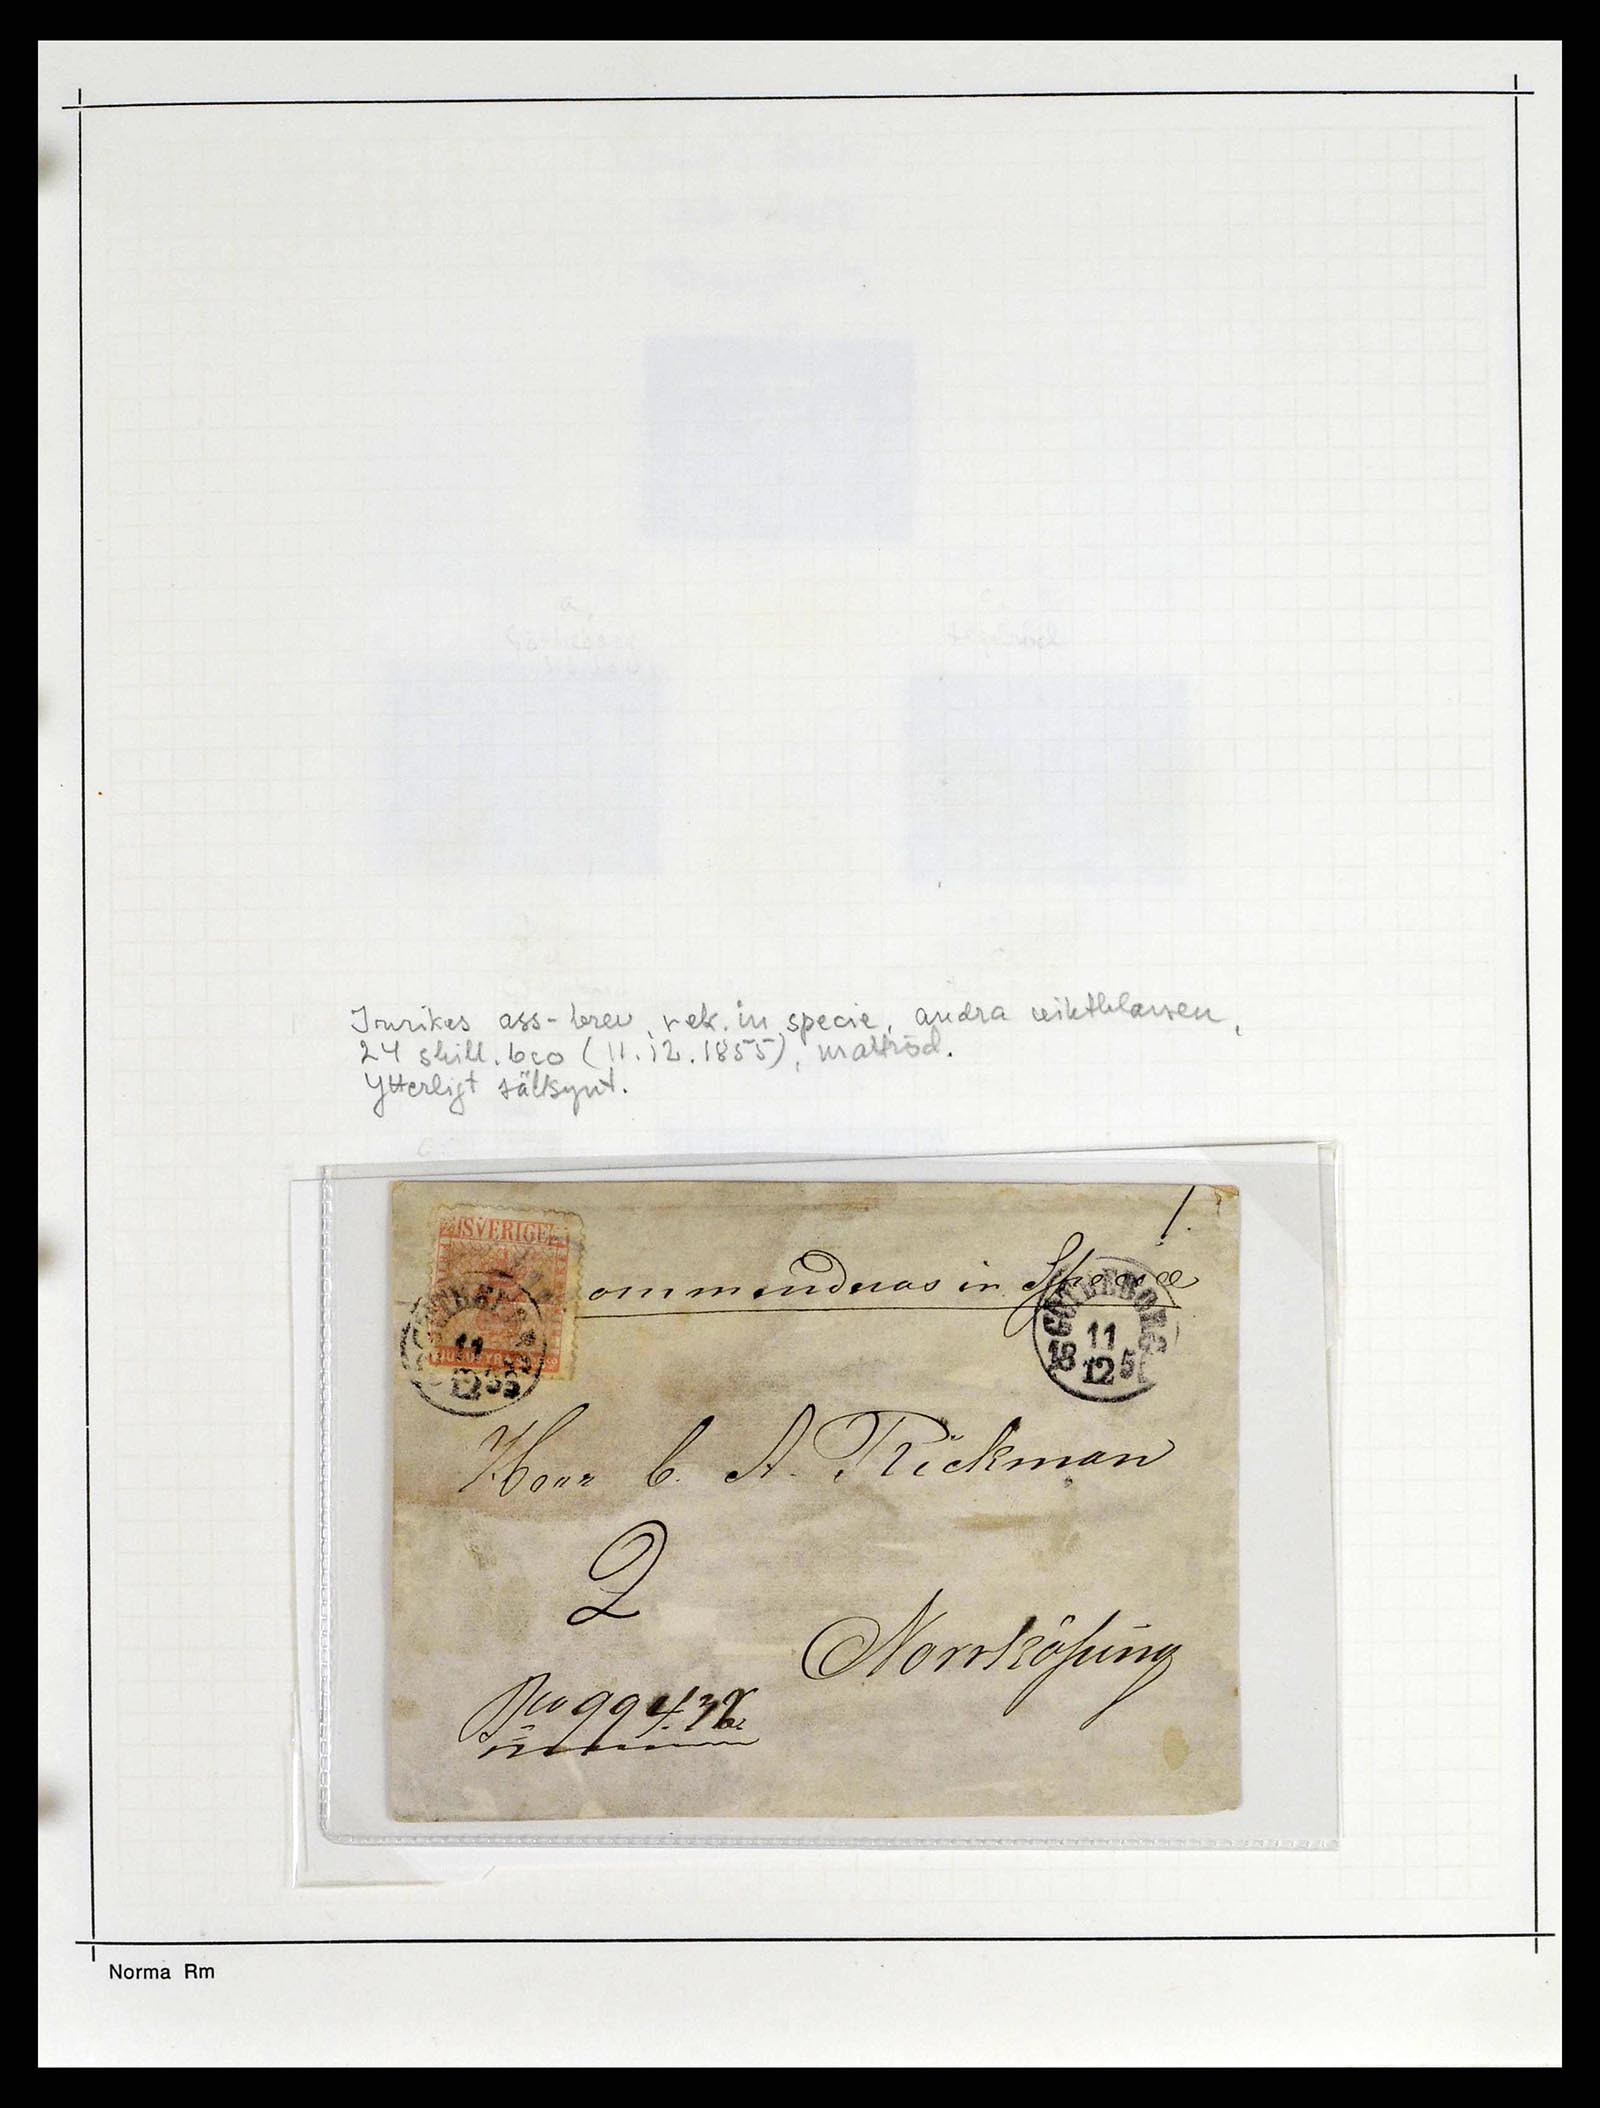 Inrikes ass-brev, rek. in specie, andra viktklassen,
24 skill. bco (11.12.1855), mattröd.
Ytterligt sällsynt.
SVERIGE
1.
ommenderas in Specie
GÖTEBORG
11
12
1855
GÖTEBORG
11
12
185
Herr C. A. Rickman
2
Norrköping
Norma Rm